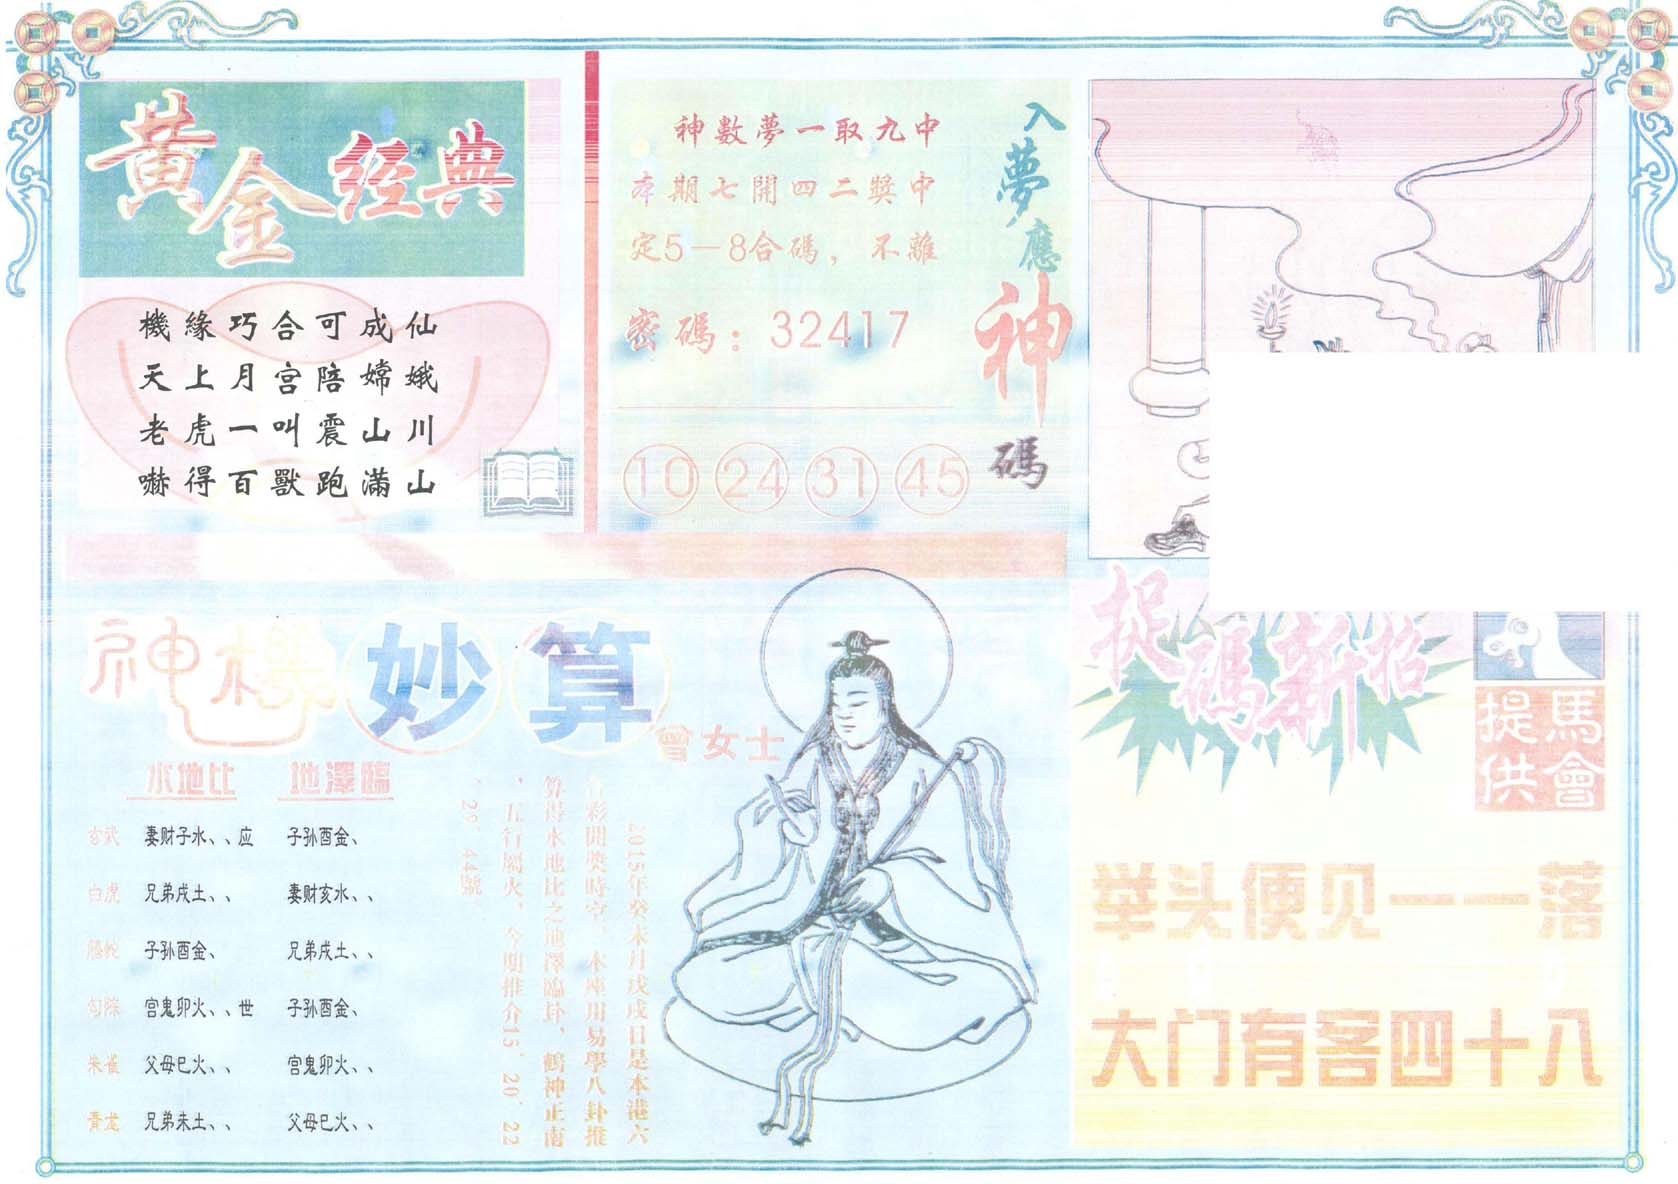 黃金经典
機緣巧合可成仙
天上月宮陪嫦娥
老虎一叫震山川
嚇得百獸跑滿山
入夢應神碼
神數夢一取九中
本期七開四二獎中
定5—8合碼，不離
密碼：32417
10 24 31 45
神機妙算
曾女士
水地比 地澤臨
玄武 妻财子水、、应 子孙酉金、
白虎 兄弟戌土、、 妻财亥水、、
螣蛇 子孙酉金、 兄弟戌土、、
勾陈 宫鬼卯火、、世 子孙酉金、
朱雀 父母巳火、、 宫鬼卯火、、
青龙 兄弟未土、、 父母巳火、、
2015年癸未月戌戌日是本港六
合彩開獎時空，本座用易學八卦推
算得水地比之地澤臨卦，鶴神正南
，五行屬火，今期推介15、20、22
、29、44號。
捉碼新招
馬會提供
举头便见一一落
大门有客四十八